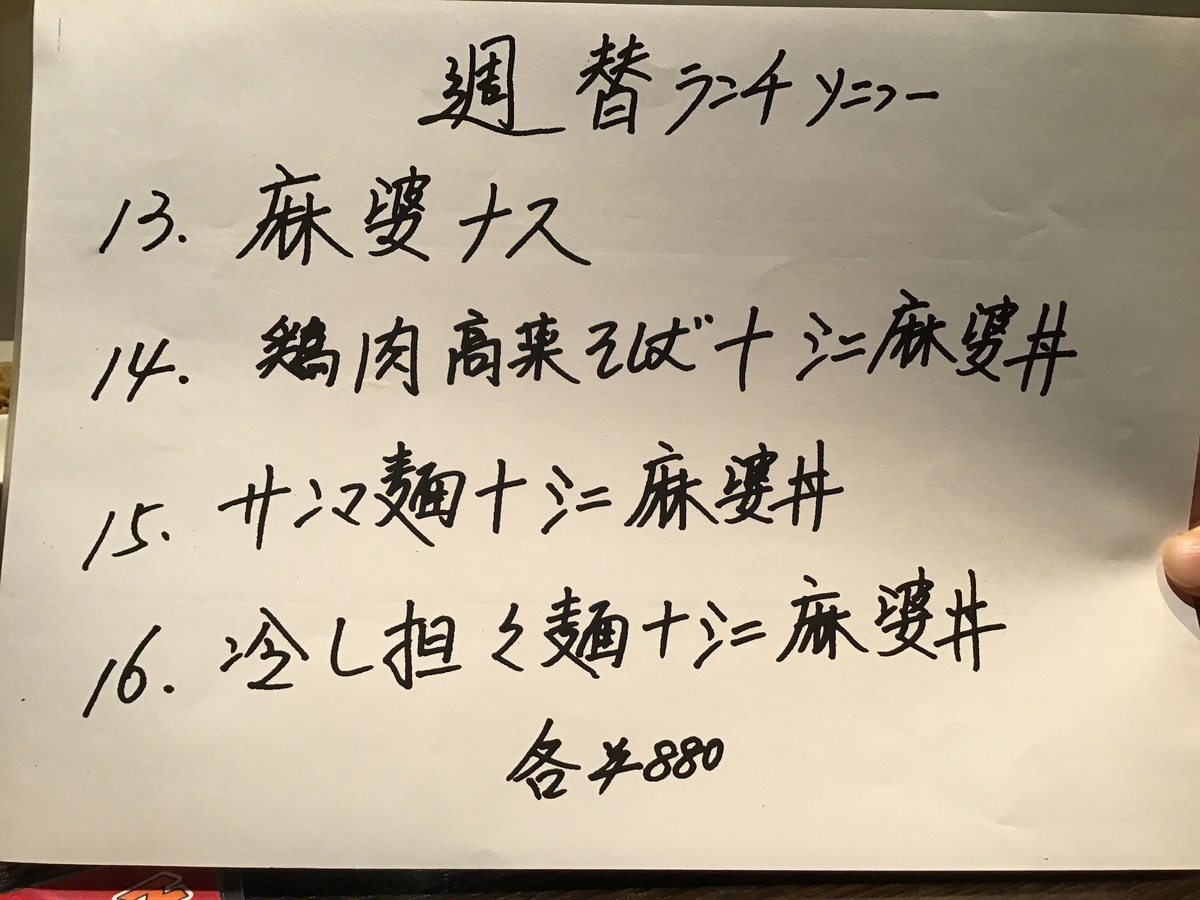 週替ランチソニュー
13. 麻婆ナス
14. 鶏肉高菜そば+ミニ麻婆丼
15. サンマ麺+ミニ麻婆丼
16. 冷し担々麺+ミニ麻婆丼
各¥880